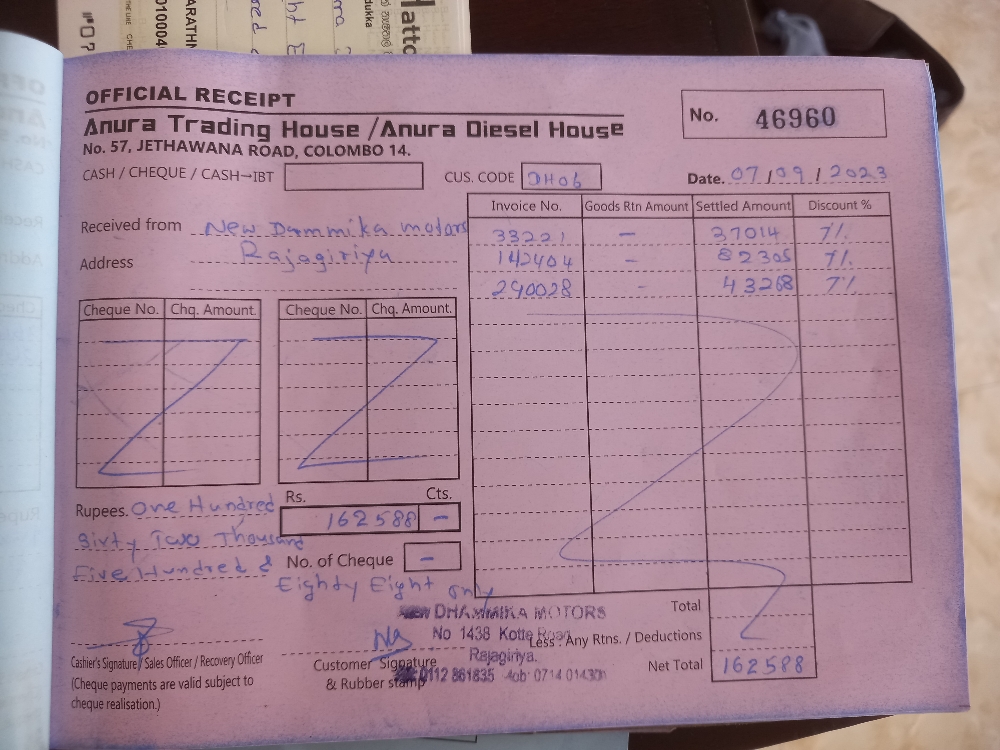 OFFICIAL RECEIPT
Anura Trading House /Anura Diesel House
No. 57, JETHAWANA ROAD, COLOMBO 14.
No. 46960
CASH / CHEQUE / CASH-IBT
CUS. CODE DH06
Date. 07/09/2023
Received from New Dammika motors
Address Rajagiriya
Invoice No. Goods Rtn Amount Settled Amount Discount %
33221 - 37014 7%
142404 - 82305 7%
290028 - 43268 7%
Cheque No. Chq. Amount. Cheque No. Chq. Amount.
Rs. Cts.
162588 -
Rupees. One Hundred
Sixty Two Thousand
Five Hundred &
Eighty Eight only
No. of Cheque -
NEW DHAMMIKA MOTORS
No 1438 Kotte Road
Rajagiriya.
0112 861835
Total
Less : Any Rtns. / Deductions
Net Total 162588
Cashier's Signature/ Sales Officer / Recovery Officer
(Cheque payments are valid subject to
cheque realisation.)
Customer Signature
& Rubber stamp